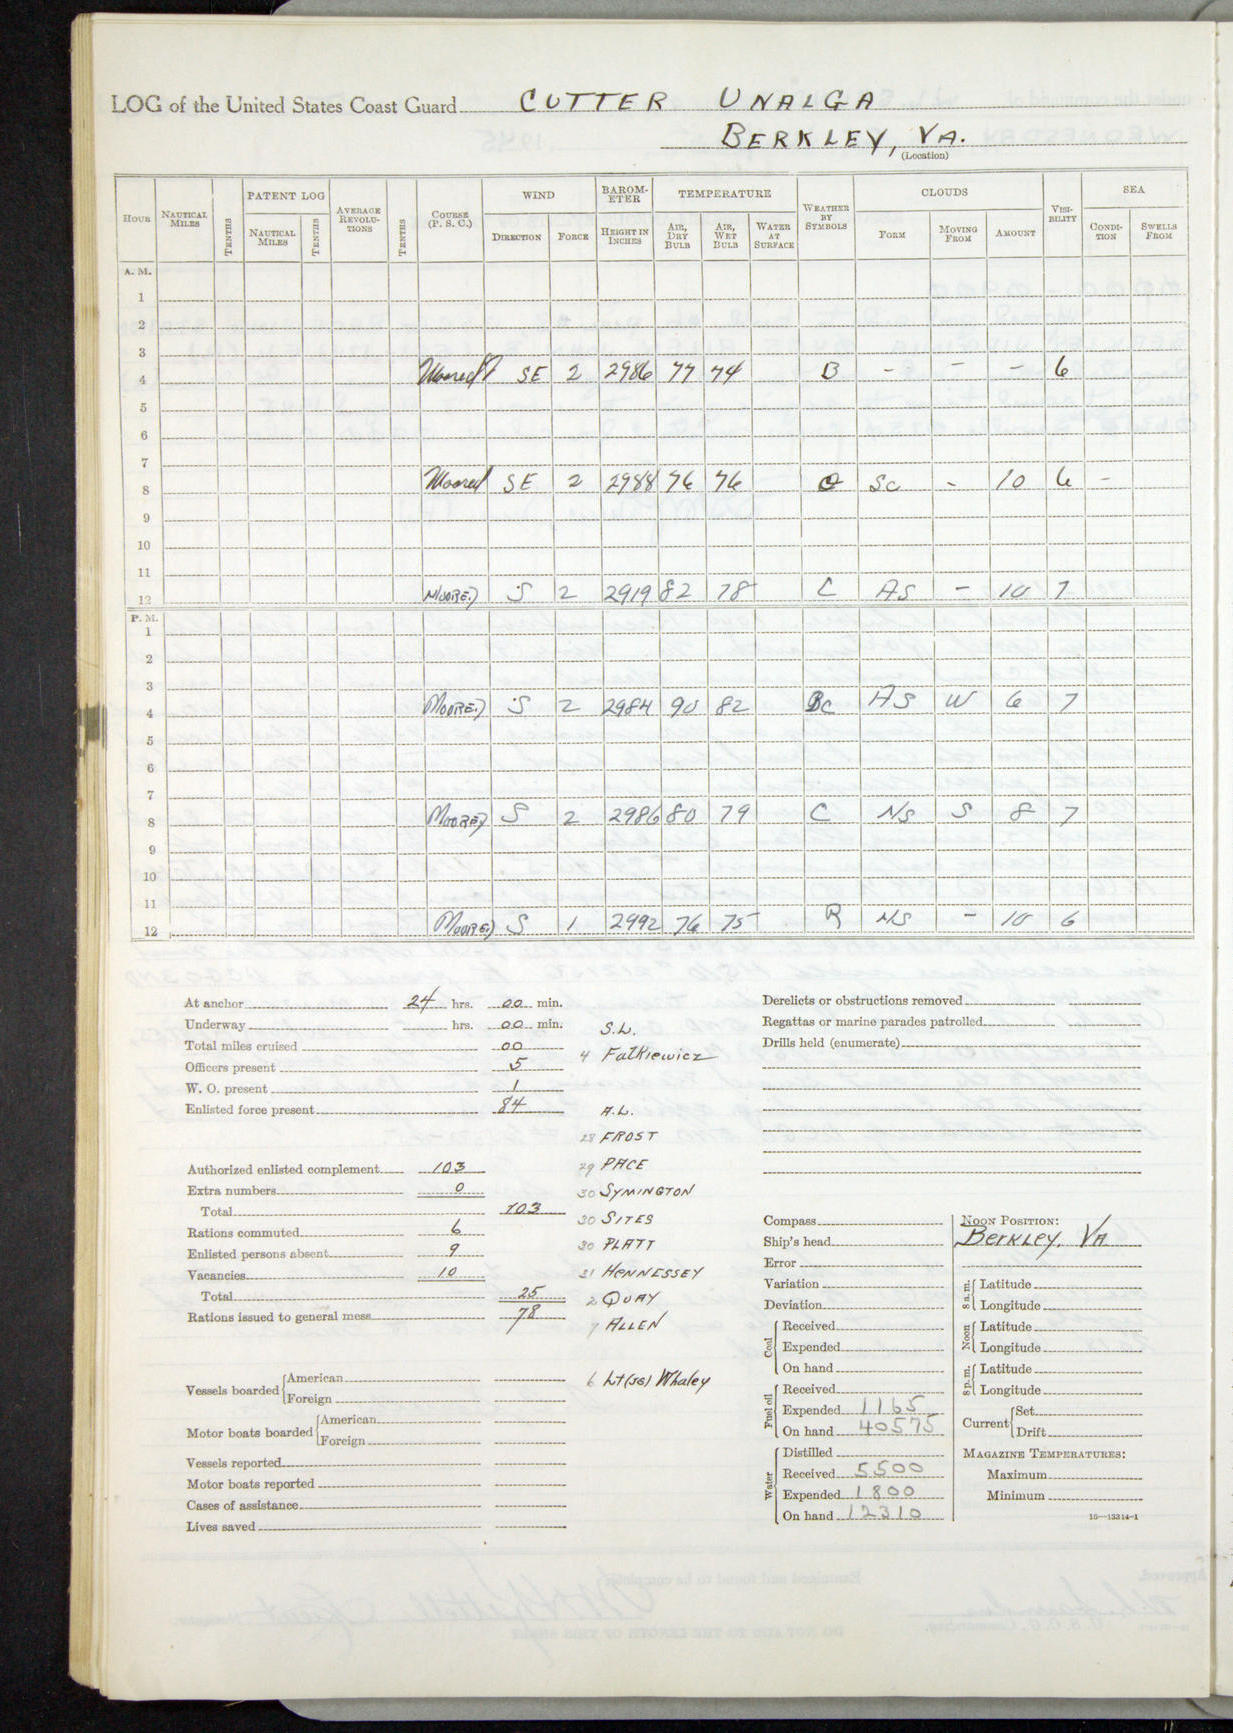 LOG of the United States Coast Guard CUTTER UNALGA
BERKLEY, VA.
(Location)
HOUR NAUTICAL MILES TENTHS PATENT LOG NAUTICAL MILES TENTHS AVERAGE REVOLU-TIONS TENTHS COURSE (P. S. C.) WIND DIRECTION FORCE BAROM-ETER HEIGHT IN INCHES TEMPERATURE AIR, DRY BULB AIR, WET BULB WATER AT SURFACE WEATHER BY SYMBOLS CLOUDS FORM MOVING FROM AMOUNT VISI-BILITY SEA CONDI-TION SWELLS FROM
A. M.
1
2
3
4 Moored SE 2 2986 77 74 B - - - 6
5
6
7
8 Moored SE 2 2988 76 76 Sc - 10 6 -
9
10
11
12 MOORED S 2 2919 82 78 C AS - 10 7
P. M.
1
2
3
4 MOORED S 2 2984 90 82 BC AS W 6 7
5
6
7
8 MOORED S 2 2986 80 79 C NS S 8 7
9
10
11
12 MOORED S 1 2992 76 75 R NS - 10 6
At anchor 24 hrs. 00 min.
Underway hrs. 00 min.
Total miles cruised 00
Officers present 5
W. O. present 1
Enlisted force present 84
Authorized enlisted complement 103
Extra numbers 0
Total 103
Rations commuted 6
Enlisted persons absent 9
Vacancies 10
Total 25
Rations issued to general mess 78
Vessels boarded American
Foreign
Motor boats boarded American
Foreign
Vessels reported
Motor boats reported
Cases of assistance
Lives saved
S.L.
4 Falkiewicz
A.L.
28 FROST
29 PACE
30 SYMINGTON
30 SITES
30 PLATT
31 HENNESSEY
2 QUAY
7 ALLEN
6 Lt(jg) Whaley
Derelicts or obstructions removed
Regattas or marine parades patrolled
Drills held (enumerate)
Compass
Ship's head
Error
Variation
Deviation
Coal Received
Expended
On hand
Fuel oil Received
Expended 1165
On hand 40575
Water Distilled
Received 5500
Expended 1800
On hand 12310
NOON POSITION:
Berkley, VA
8 a.m. Latitude
Longitude
Noon Latitude
Longitude
8 p.m. Latitude
Longitude
Current Set
Drift
MAGAZINE TEMPERATURES:
Maximum
Minimum
16—13314-1